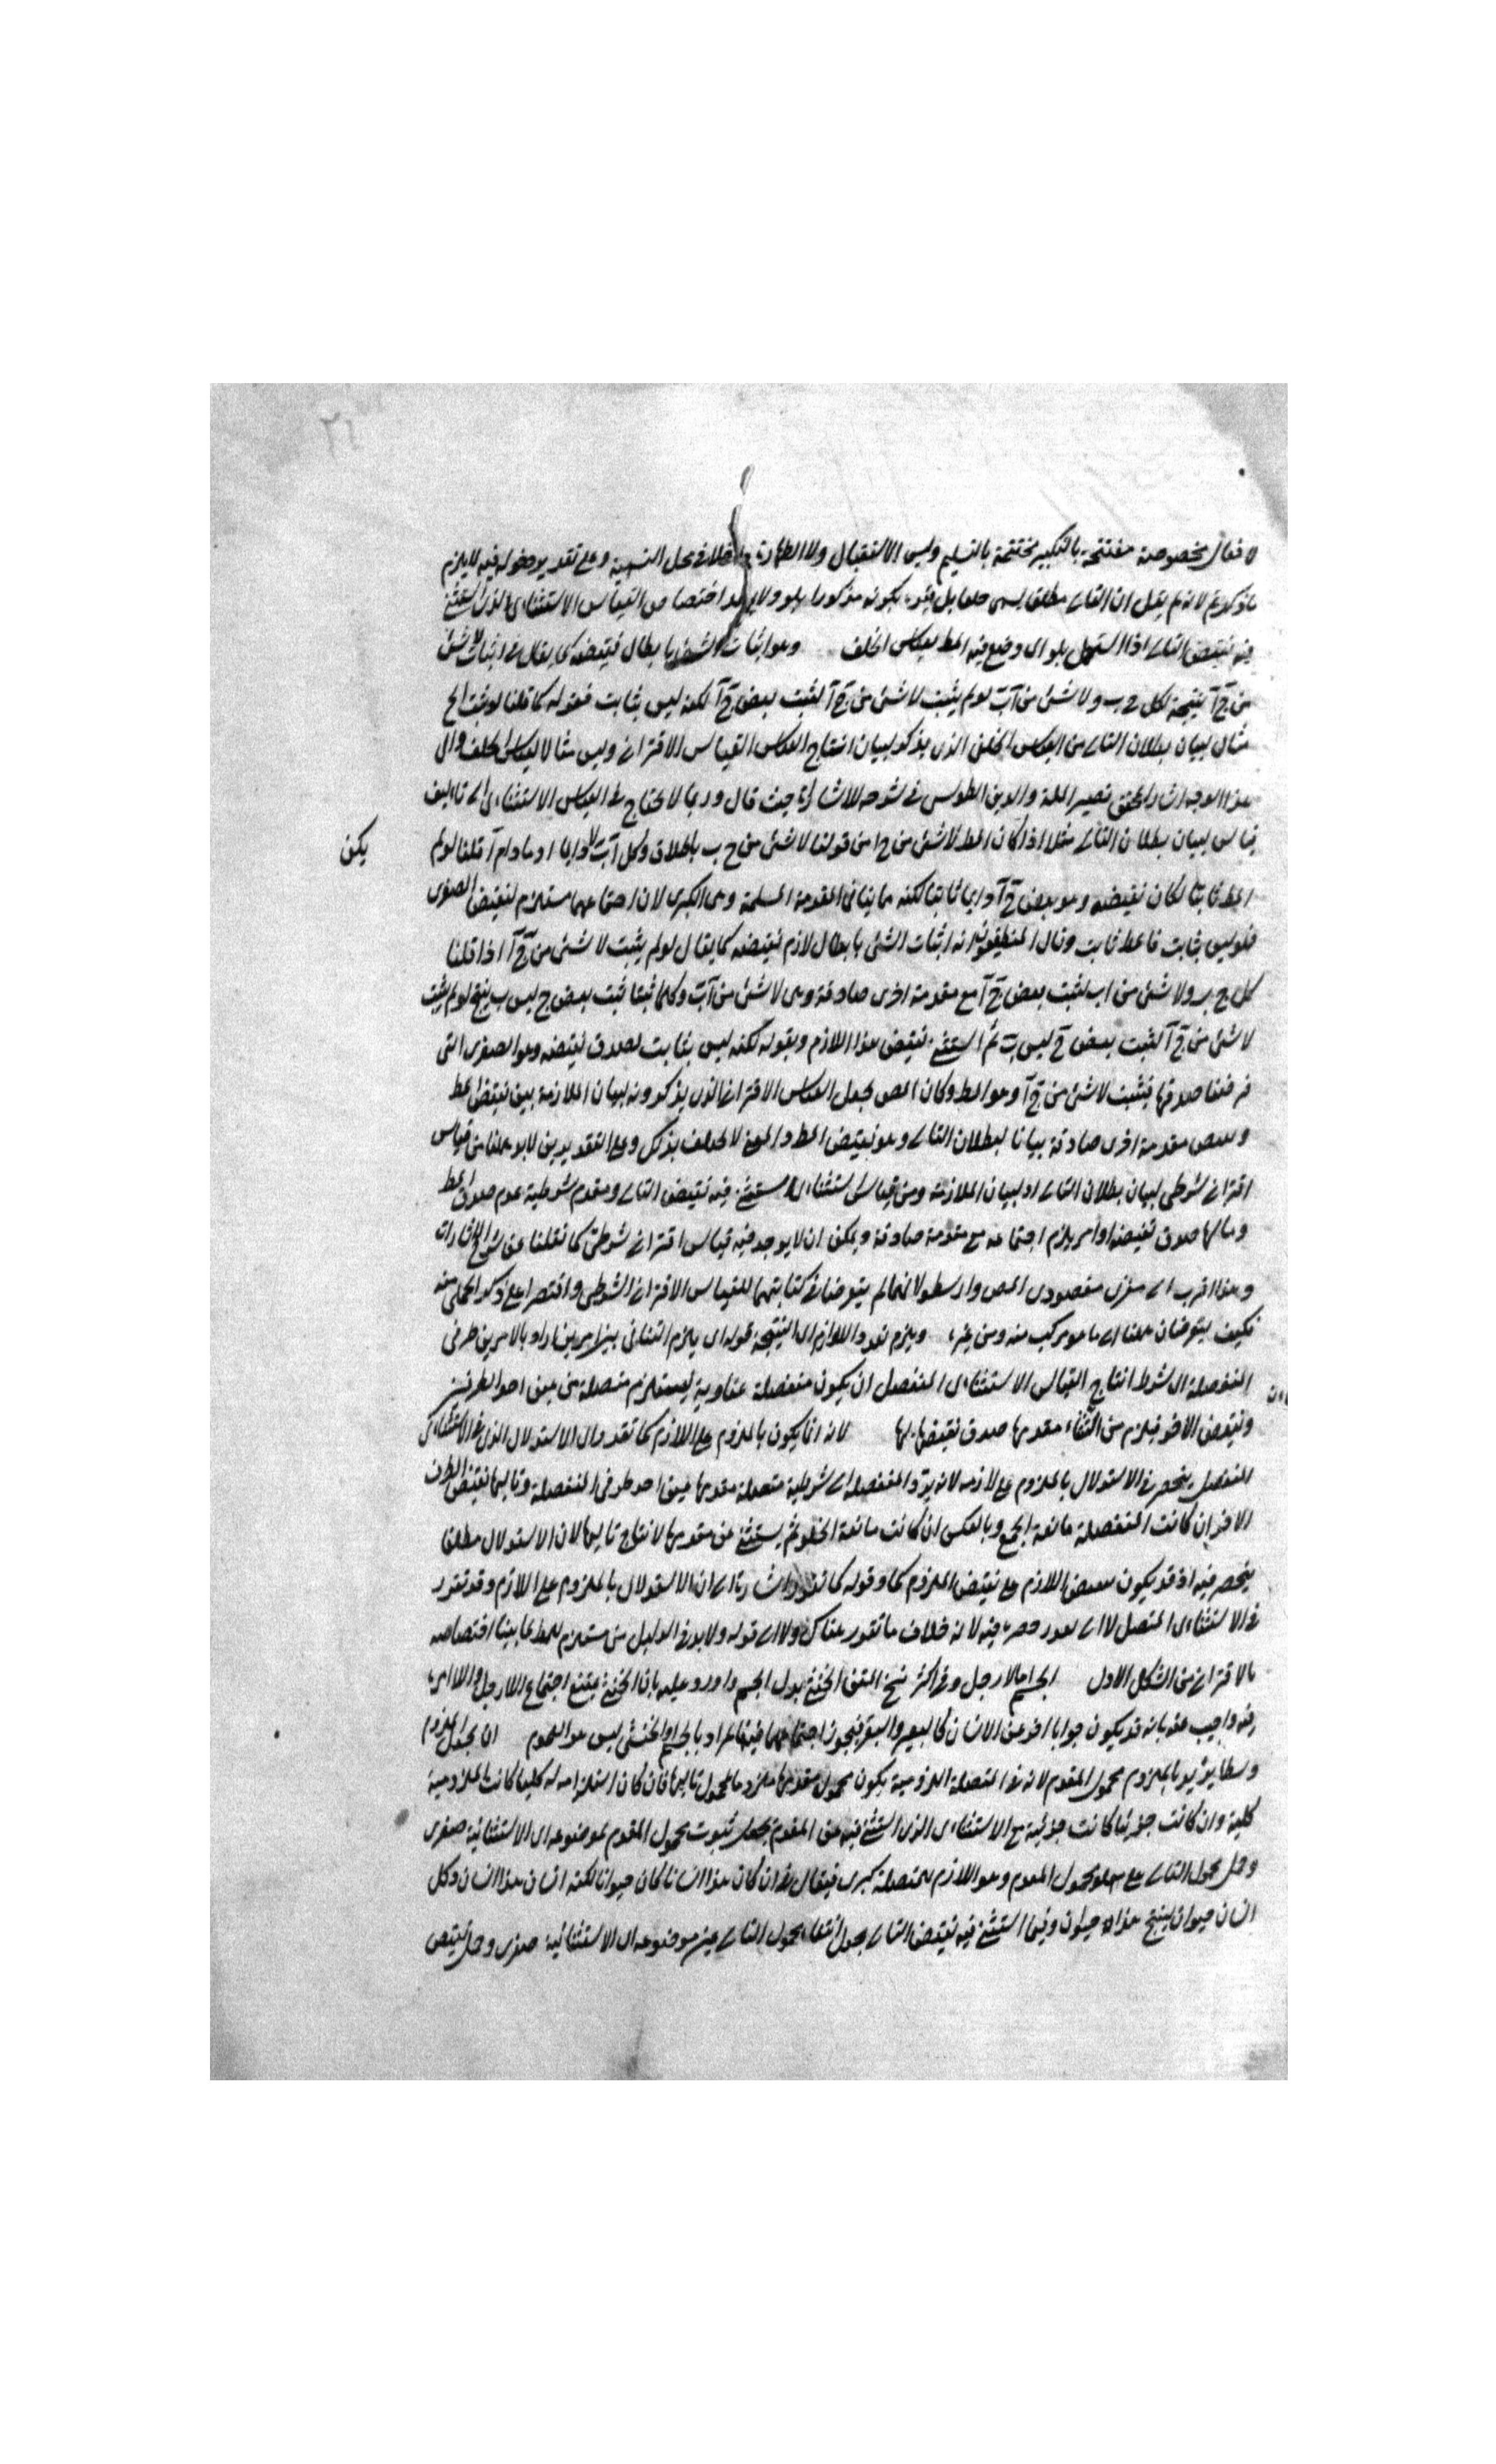 ٣١
لافعال مخصوصة مفتتحة بالتكبير مختتمة بالتسليم وليس الاستقبال ولا الطهارة داخلا في محل التسمية وعلى تقدير دخوله فيه لا يلزم
ما ذكرتم لانه لم يقل ان التالى مطلقا يسمى خلفا بل بقيد كونه مذكورا بلو ولا اختصاص القياس الاستثنائى الذى استثنى
فيه نقيض التالى اذا استعمل بلو اى وضع فيه المط بقياس الخلف وهو اثبات الشئ بابطال نقيضه كما يقال فى اثبات لا شئ
من ج آ نتيجة لكل ج ب ولا شئ من آ ب لو لم يثبت لا شئ من ج آ لثبت بعض ج آ لكنه ليس بثابت فقوله كما قلنا لو ثبت الخ
مثال لبيان بطلان التالى من القياس الخلفى الذى يذكر لبيان انتاج القياس الاقترانى وليس مثالا لقياس الخلف والى
هذا الوجه اشار المحقق نصير الملة والدين الطوسى فى شرحه للاشارات حيث قال وربما لا يحتاج فى القياس الاستثنائى الى تاليف
قياس لبيان بطلان التالى مثلا اذا كان المط لا شئ من ج ا من قولنا لا شئ من ج ب باطلاق وكل آ ب لا دايما او مادام آ قلنا لو لم
يكن
المط ثابتا لكان نقيضه وهو بعض ج آ دايما ثابتا لكنه مما ينافى المقدمة المسلمة وهى الكبرى لان اجتماعهما مستلزم لنقيض الصغرى
فليس بثابت فالمط ثابت وقال المنطقيون انه اثبات الشئ بابطال لازم نقيضه كما يقال لو لم يثبت لا شئ من ج آ اذا قلنا
كل ج ب ولا شئ من اب لثبت بعض ج آ مع مقدمة اخرى صادقة وهى لا شئ من آ ب وكلما ثبتا ثبت بعض ج ليس ب ينتج لو لم يثبت
لا شئ من ج آ لثبت بعض ج ليس ب ثم استثنى نقيض هذا اللازم وبقوله لكنه ليس بثابت لصدق نقيضه وهو الصغرى التى
فرضنا صدقها فيثبت لا شئ من ج آ وهو المط وكان المص جعل القياس الاقترانى الذى يذكرونه لبيان الملازمة بين نقيض المط
وبعض مقدمة اخرى صادقة بيانا لبطلان التالى وهو نقيض المط والمعنى لا يختلف بذلك وعلى التقديرين لابد هنا من قياس
اقترانى شرطى لبيان بطلان التالى او لبيان الملازمة ومن قياس استثنائى استثنى فيه نقيض التالى ومقدم شرطية عدم صدق المط
وتاليها صدق نقيضه او امر يلزم اجتماعه مع مقدمة صادقة ويمكن ان لا يوجد فيه قياس اقترانى شرطى كما نقلنا عن شرح الاشارات
وهذا اقرب الى مغزى مقصودى المص وارسطو لانهما لم يتعرضا فى كتابتهما للقياس الاقترانى الشرطى واقتصرا على ذكر الحملى منه
فكيف يتعرضان هنا الى ما هو مركب منه ومن غيره ويلزم تعدد اللوازم اى النتيجة قوله اى يلزم التنافى بين امرين اراد بالامرين طرفى
المنفصلة اى شرط انتاج القياس الاستثنائى المنفصل ان يكون منفصلة عنادية ليستلزم متصلة من عين احد الطرفين
ونقيض الاخر فيلزم من استثناء مقدمها صدق نقيضها لها لانه انما يكون بالملزوم على اللازم كما تقدم اى الاستدلال الذى فى الاستثنائى
المنفصل ينحصر فى الاستدلال بالملزوم على لازمه لانه يرد المنفصلة الى شرطية متصلة مقدمها عين احد طرفى المنفصلة وتاليها نقيض الطرف
الاخر ان كانت المنفصلة مانعة الجمع وبالعكس ان كانت مانعة الخلو ثم يستثنى عن مقدمها لانتاج تاليها لان الاستدلال مطلقا
ينحصر فيه اذ قد يكون بنقيض اللازم على نقيض الملزوم كما وقوله كما تقدم اشارة الى ان الاستدلال بالملزوم على اللازم وقد تقرر
فى الاستثنائى المتصل لا الى حصره فيه لانه خلاف ما تقرر هناك ولا الى قوله ولابد فى الدليل من مستلزم للمط لما بينا اختصاصه
بالاقترانى من الشكل الاول الجسم اما لا رجل وفى اكثر نسخ المتن الخنثى بدل الجسم واورد عليه بان الخنثى يمتنع اجتماع اللارجل واللاامرأة
فيه واجيب عنه بانه قد يكون جوابا اخر عن الانسان كالبعير والبقر فيجوز اجتماعهما فيه فالمراد بالجسم والخنثى ليس هو العموم ان يجعل الملزوم
وسطا يريد بالملزوم محمول المقدم لانه فى المتصلة اللزومية يكون محمول مقدمها ملزوما لمحمول تاليها فان كان استلزامه له كليا كانت الملزومية
كلية وان كانت جزئيا كانت جزئية مع الاستثنائى الذى استثنى فيه عين المقدم يجعل ثبوت محمول المقدم لموضوعه اى الاستثنائية صغرى
وحمل محمول التالى على محمول المقدم وهو اللازم للمتصلة كبرى فيقال فى ان كان هذا انسانا كان حيوانا لكنه انسان هذا انسان وكل
انسان حيوان ينتج هذا حيوان وفيما استثنى فيه نقيض التالى يجعل انتفاء محمول التالى عن موضوعه اى الاستثنائية صغرى وحمل نقيض